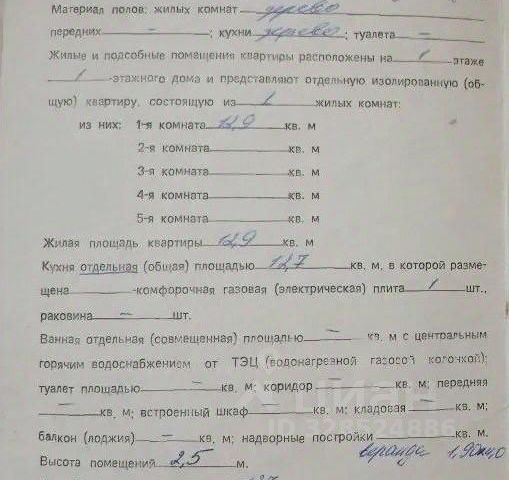 Материал полов: жилых комнат дерево
передних — ; кухни дерево ; туалета —
Жилые и подсобные помещения квартиры расположены на 1 этаже
1 -этажного дома и представляют отдельную изолированную (об-
щую) квартиру, состоящую из 1 жилых комнат:
из них: 1-я комната 12,9 кв. м
2-я комната кв. м
3-я комната кв. м
4-я комната кв. м
5-я комната кв. м
Жилая площадь квартиры 12,9 кв. м
Кухня отдельная (общая) площадью 12,7 кв. м, в которой разме-
щена -комфорочная газовая (электрическая) плита 1 шт.,
раковина — шт.
Ванная отдельная (совмещенная) площадью — кв. м с центральным
горячим водоснабжением от ТЭЦ (водонагревной газовой колонкой);
туалет площадью — кв. м; коридор кв. м; передняя
— кв. м; встроенный шкаф кв. м; кладовая — кв. м;
балкон (лоджия) — кв. м; надворные постройки кв. м.
веранда
Высота помещений 2,5 м.
циан
ID 328524886